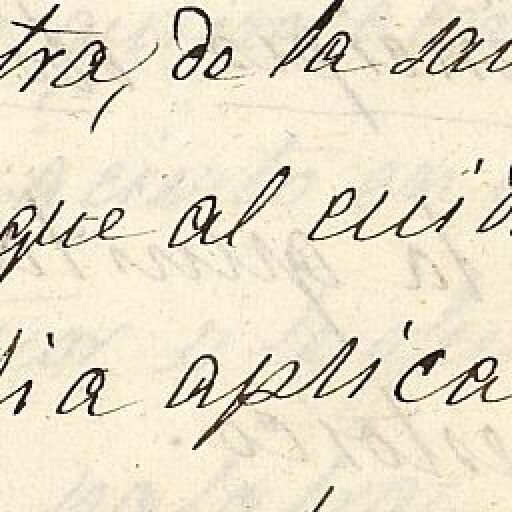 tra, de la sau
que al cuid
lia aplica